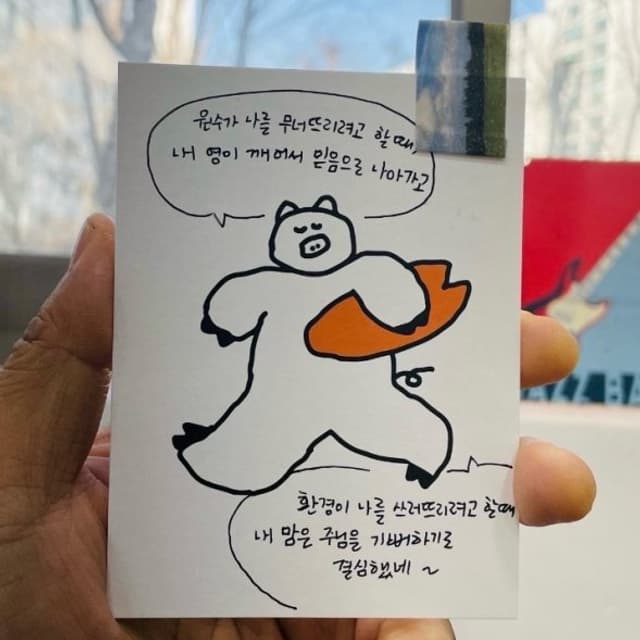 원수가 나를 무너뜨리려고 할때,
내 영이 깨어서 믿음으로 나아가고
환경이 나를 쓰러뜨리려고 할때
내 맘은 주님을 기뻐하기로
결심했네 ~